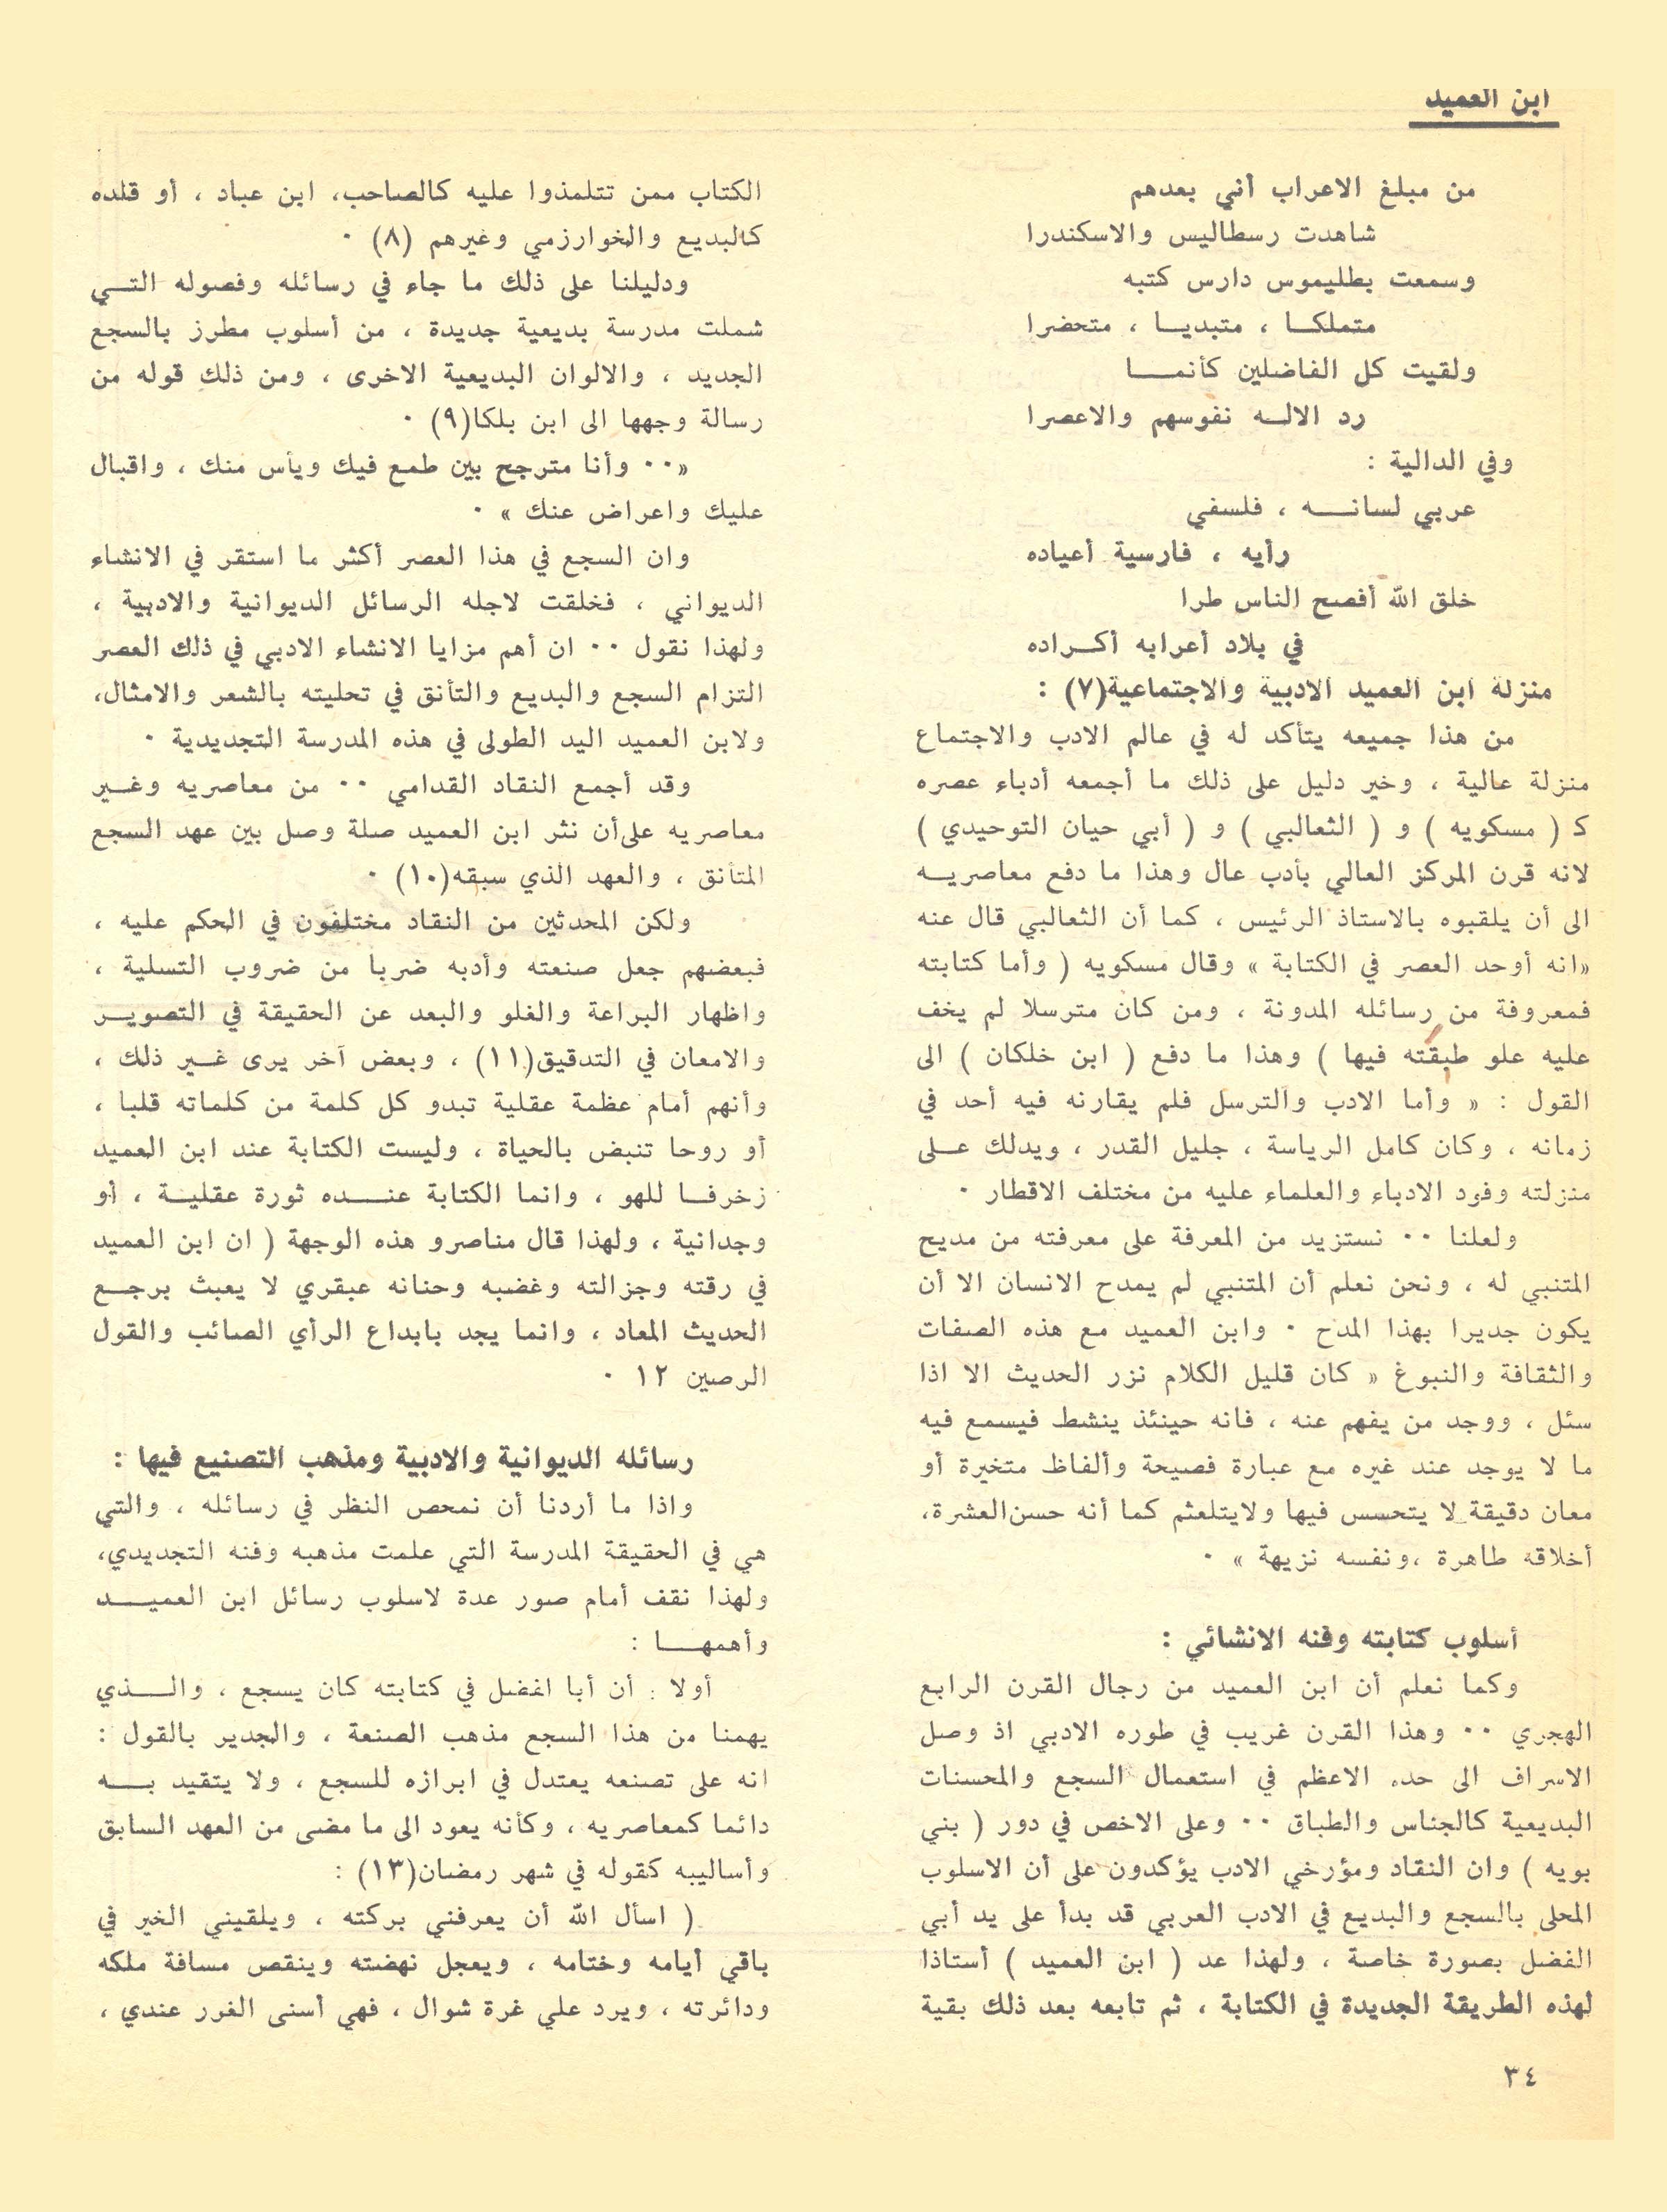 ابن العميد
من مبلغ الاعراب أني بعدهم
شاهدت رسطاليس والاسكندرا
وسمعت بطليموس دارس كتبه
متملكا ، متبديا ، متحضرا
ولقيت كل الفاضلين كأنما
رد الاله نفوسهم والاعصرا
وفي الدالية :
عربي لسانه ، فلسفي
رأيه ، فارسية أعياده
خلق الله أفصح الناس طرا
في بلاد أعرابه أكراده
منزلة ابن العميد الادبية والاجتماعية(٧) :
من هذا جميعه يتأكد له في عالم الادب والاجتماع
منزلة عالية ، وخير دليل على ذلك ما أجمعه أدباء عصره
كـ ( مسكويه ) و ( الثعالبي ) و ( أبي حيان التوحيدي )
لانه قرن المركز العالي بأدب عال وهذا ما دفع معاصريه
الى أن يلقبوه بالاستاذ الرئيس ، كما أن الثعالبي قال عنه
«انه أوحد العصر في الكتابة » وقال مسكويه ( وأما كتابته
فمعروفة من رسائله المدونة ، ومن كان مترسلا لم يخف
عليه علو طبقته فيها ) وهذا ما دفع ( ابن خلكان ) الى
القول : « وأما الادب والترسل فلم يقارنه فيه أحد في
زمانه ، وكان كامل الرياسة ، جليل القدر ، ويدلك على
منزلته وفود الادباء والعلماء عليه من مختلف الاقطار ٠
ولعلنا ٠٠ نستزيد من المعرفة على معرفته من مديح
المتنبي له ، ونحن نعلم أن المتنبي لم يمدح الانسان الا أن
يكون جديرا بهذا المدح ٠ وابن العميد مع هذه الصفات
والثقافة والنبوغ « كان قليل الكلام نزر الحديث الا اذا
سئل ، ووجد من يفهم عنه ، فانه حينئذ ينشط فيسمع فيه
ما لا يوجد عند غيره مع عبارة فصيحة وألفاظ متخيرة أو
معان دقيقة لا يتحسس فيها ولايتلعثم كما أنه حسن العشرة،
أخلاقه طاهرة ،ونفسه نزيهة » ٠
أسلوب كتابته وفنه الانشائي :
وكما نعلم أن ابن العميد من رجال القرن الرابع
الهجري ٠٠ وهذا القرن غريب في طوره الادبي اذ وصل
الاسراف الى حده الاعظم في استعمال السجع والمحسنات
البديعية كالجناس والطباق ٠٠ وعلى الاخص في دور ( بني
بويه ) وان النقاد ومؤرخي الادب يؤكدون على أن الاسلوب
المحلى بالسجع والبديع في الادب العربي قد بدأ على يد أبي
الفضل بصورة خاصة ، ولهذا عد ( ابن العميد ) أستاذا
لهذه الطريقة الجديدة في الكتابة ، ثم تابعه بعد ذلك بقية
الكتاب ممن تتلمذوا عليه كالصاحب، ابن عباد ، أو قلده
كالبديع والخوارزمي وغيرهم (٨) ٠
ودليلنا على ذلك ما جاء في رسائله وفصوله التي
شملت مدرسة بديعية جديدة ، من أسلوب مطرز بالسجع
الجديد ، والالوان البديعية الاخرى ، ومن ذلك قوله من
رسالة وجهها الى ابن بلكا(٩) ٠
«٠٠ وأنا مترجح بين طمع فيك ويأس منك ، واقبال
عليك واعراض عنك » ٠
وان السجع في هذا العصر أكثر ما استقر في الانشاء
الديواني ، فخلقت لاجله الرسائل الديوانية والادبية ،
ولهذا نقول ٠٠ ان أهم مزايا الانشاء الادبي في ذلك العصر
التزام السجع والبديع والتأنق في تحليته بالشعر والامثال،
ولابن العميد اليد الطولى في هذه المدرسة التجديدية ٠
وقد أجمع النقاد القدامي ٠٠ من معاصريه وغير
معاصريه على أن نثر ابن العميد صلة وصل بين عهد السجع
المتأنق ، والعهد الذي سبقه(١٠) ٠
ولكن المحدثين من النقاد مختلفون في الحكم عليه ،
فبعضهم جعل صنعته وأدبه ضربا من ضروب التسلية ،
واظهار البراعة والغلو والبعد عن الحقيقة في التصوير
والامعان في التدقيق(١١) ، وبعض آخر يرى غير ذلك ،
وأنهم أمام عظمة عقلية تبدو كل كلمة من كلماته قلبا ،
أو روحا تنبض بالحياة ، وليست الكتابة عند ابن العميد
زخرفا للهو ، وانما الكتابة عنده ثورة عقلية ، أو
وجدانية ، ولهذا قال مناصرو هذه الوجهة ( ان ابن العميد
في رقته وجزالته وغضبه وحنانه عبقري لا يعبث برجع
الحديث المعاد ، وانما يجد بابداع الرأي الصائب والقول
الرصين ١٢ ٠
رسائله الديوانية والادبية ومذهب التصنيع فيها :
واذا ما أردنا أن نمحص النظر في رسائله ، والتي
هي في الحقيقة المدرسة التي علمت مذهبه وفنه التجديدي،
ولهذا نقف أمام صور عدة لاسلوب رسائل ابن العميد
وأهمها :
أولا : أن أبا الفضل في كتابته كان يسجع ، والذي
يهمنا من هذا السجع مذهب الصنعة ، والجدير بالقول :
انه على تصنعه يعتدل في ابرازه للسجع ، ولا يتقيد به
دائما كمعاصريه ، وكأنه يعود الى ما مضى من العهد السابق
وأساليبه كقوله في شهر رمضان(١٣) :
( اسأل الله أن يعرفني بركته ، ويلقيني الخير في
باقي أيامه وختامه ، ويعجل نهضته وينقص مسافة ملكه
ودائرته ، ويرد علي غرة شوال ، فهي أسنى الغرر عندي ،
٣٤